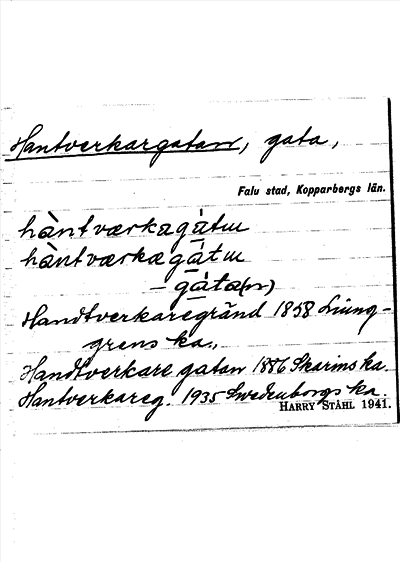 Hantverkargatan, gata,
Falu stad, Kopparbergs län.
hàntværkagátɯ
hàntværkægátɯ
- gáta(n)
Handtverkaregränd 1858 Ljung-
grens ka.,
Handtverkare gatan 1886 Skarins ka.
Hantverkareg. 1935 Swedenborgs ka.
HARRY STÅHL 1941.